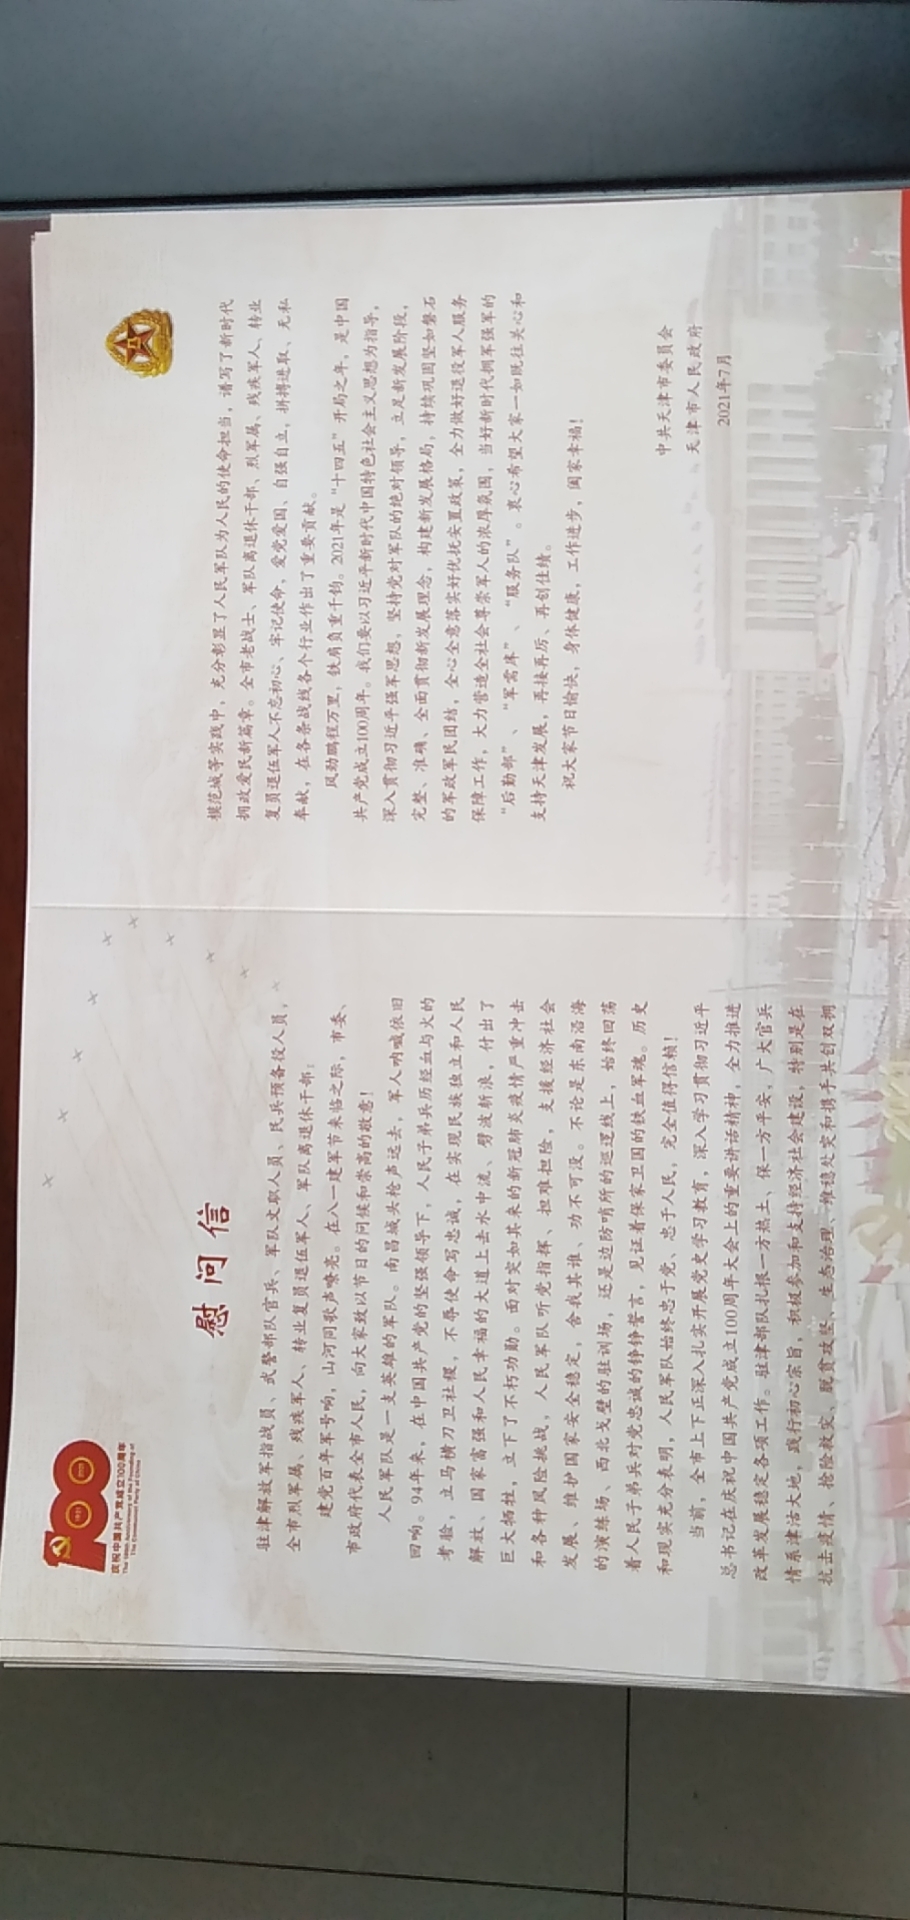 庆祝中国共产党成立100周年
The 100th Anniversary of the Founding of
The Communist Party of China
慰问信
驻津解放军指战员、武警部队官兵、军队文职人员、民兵预备役人员，
全市烈军属、残疾军人、转业复员退伍军人、军队离退休干部：
建党百年军号响，山河同歌声嘹亮。在八一建军节来临之际，市委、
市政府代表全市人民，向大家致以节日的问候和崇高的敬意！
人民军队是一支英雄的军队。南昌城头枪声远去，军人呐喊依旧
回响。94年来，在中国共产党的坚强领导下，人民子弟兵历经血与火的
考验，立马横刀卫社稷，不辱使命写忠诚，在实现民族独立和人民
解放、国家富强和人民幸福的大道上击水中流、劈波斩浪，付出了
巨大牺牲，立下了不朽功勋。面对突如其来的新冠肺炎疫情严重冲击
和各种风险挑战，人民军队听党指挥、担难担险，支援经济社会
发展、维护国家安全稳定，舍我其谁、功不可没。不论是东南沿海
的演练场、西北戈壁的驻训场，还是边防哨所的巡逻线上，始终回荡
着人民子弟兵对党忠诚的铮铮誓言，见证着保家卫国的铁血军魂。历史
和现实充分表明，人民军队始终忠于党、忠于人民，完全值得信赖！
当前，全市上下正深入扎实开展党史学习教育，深入学习贯彻习近平
总书记在庆祝中国共产党成立100周年大会上的重要讲话精神，全力推进
改革发展稳定各项工作。驻津部队扎根一方热土、保一方平安，广大官兵
情系津沽大地，践行初心宗旨，积极参加和支持经济社会建设，特别是在
抗击疫情、抢险救灾、脱贫攻坚、生态治理、维稳处突和携手共创双拥
模范城等实践中，充分彰显了人民军队为人民的使命担当，谱写了新时代
拥政爱民新篇章。全市老战士、军队离退休干部、烈军属、残疾军人、转业
复员退伍军人不忘初心、牢记使命，爱党爱国、自强自立，拼搏进取、无私
奉献，在各条战线各个行业作出了重要贡献。
风劲鹏程万里，铁肩负重千钧。2021年是“十四五”开局之年，是中国
共产党成立100周年。我们要以习近平新时代中国特色社会主义思想为指导，
深入贯彻习近平强军思想，坚持党对军队的绝对领导，立足新发展阶段，
完整、准确、全面贯彻新发展理念，构建新发展格局，持续巩固坚如磐石
的军政军民团结，全心全意落实好优抚安置政策，全力做好退役军人服务
保障工作，大力营造全社会尊崇军人的浓厚氛围，当好新时代拥军强军的
“后勤部”、“军需库”、“服务队”。衷心希望大家一如既往关心和
支持天津发展，再接再厉、再创佳绩。
祝大家节日愉快，身体健康，工作进步，阖家幸福！
中共天津市委员会
天津市人民政府
2021年7月